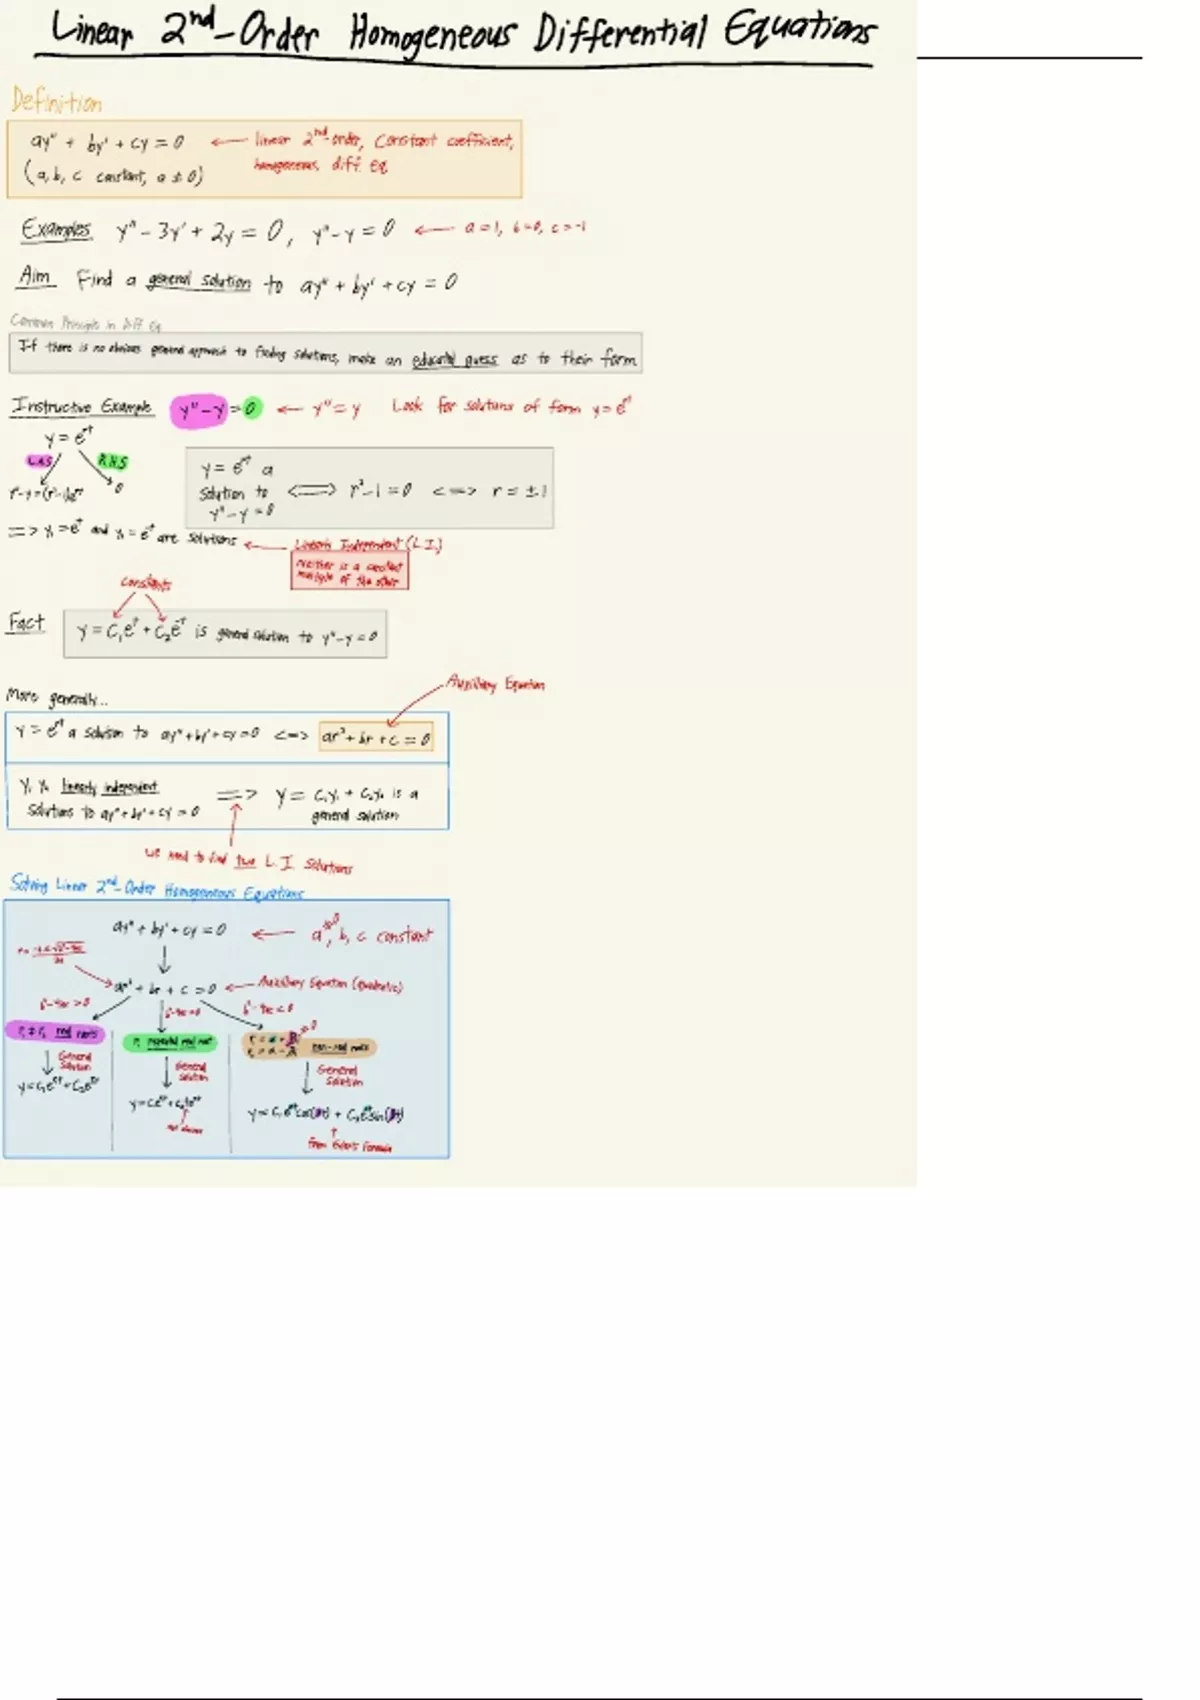 Linear 2nd-Order Homogeneous Differential Equations
Definition
ay" + by' + cy = 0 ← linear 2nd-order, constant coefficient,
(a, b, c constant, a ≠ 0) homogeneous, diff. eq
Examples y" - 3y' + 2y = 0, y" - y = 0 ← a = 1, b = 0, c = -1
Aim Find a general solution to ay" + by' + cy = 0
Common Principle in Diff Eq
If there is no obvious general approach to finding solutions, make an educated guess as to their form
Instructive Example y" - y = 0 ← y" = y Look for solutions of form y = e^rt
y = e^rt
L.H.S R.H.S
0
y = e^rt a
solution to ⟺ r² - 1 = 0 ⟺ r = ±1
y" - y = 0
=> y₁ = e^t and y₂ = e^-t are solutions ← Linearly Independent (L.I.)
neither is a constant
multiple of the other
constants
Fact y = C₁e^t + C₂e^-t is general solution to y" - y = 0
More generally...
Auxilliary Equation
y = e^rt a solution to ay" + by' + cy = 0 <=> ar² + br + c = 0
y₁, y₂ linearly independent => y = C₁y₁ + C₂y₂ is a
solutions to ay" + by' + cy = 0 general solution
we need to find two L.I. solutions
Solving Linear 2nd-Order Homogeneous Equations
ay" + by' + cy = 0 ← a≠0, b, c constant
ar² + br + c = 0 ← Auxilliary Equation (quadratic)
b² - 4ac > 0 b² - 4ac = 0 b² - 4ac < 0
r₁ ≠ r₂ real roots
r₁ repeated real root
r₁ = α + βi
r₂ = α - βi non-real roots
General Solution
General Solution
General Solution
y = C₁e^r₁t + C₂e^r₂t
y = C₁e^rt + C₂te^rt
y = C₁e^αt cos(βt) + C₂e^αt sin(βt)
not obvious
from Euler's Formula